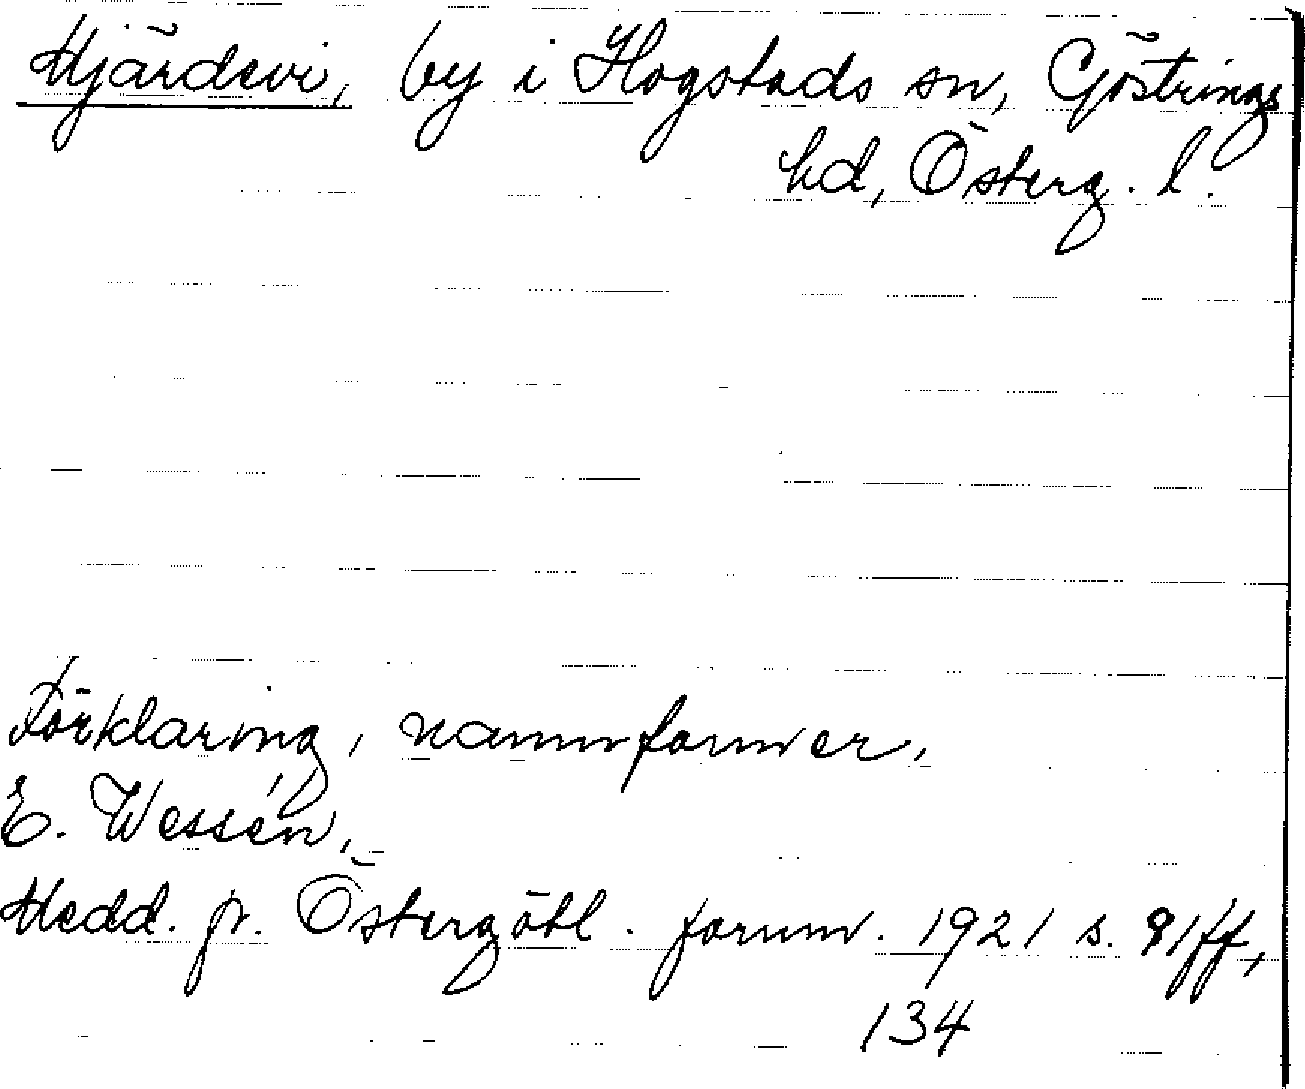 Mjärdevi, by i Hogstads sn, Göstrings
hd, Österg. l.
Förklaring, namnformer,
E. Wessén,
Medd. fr. Östergötl. fornm. 1921 s. 91ff,
134